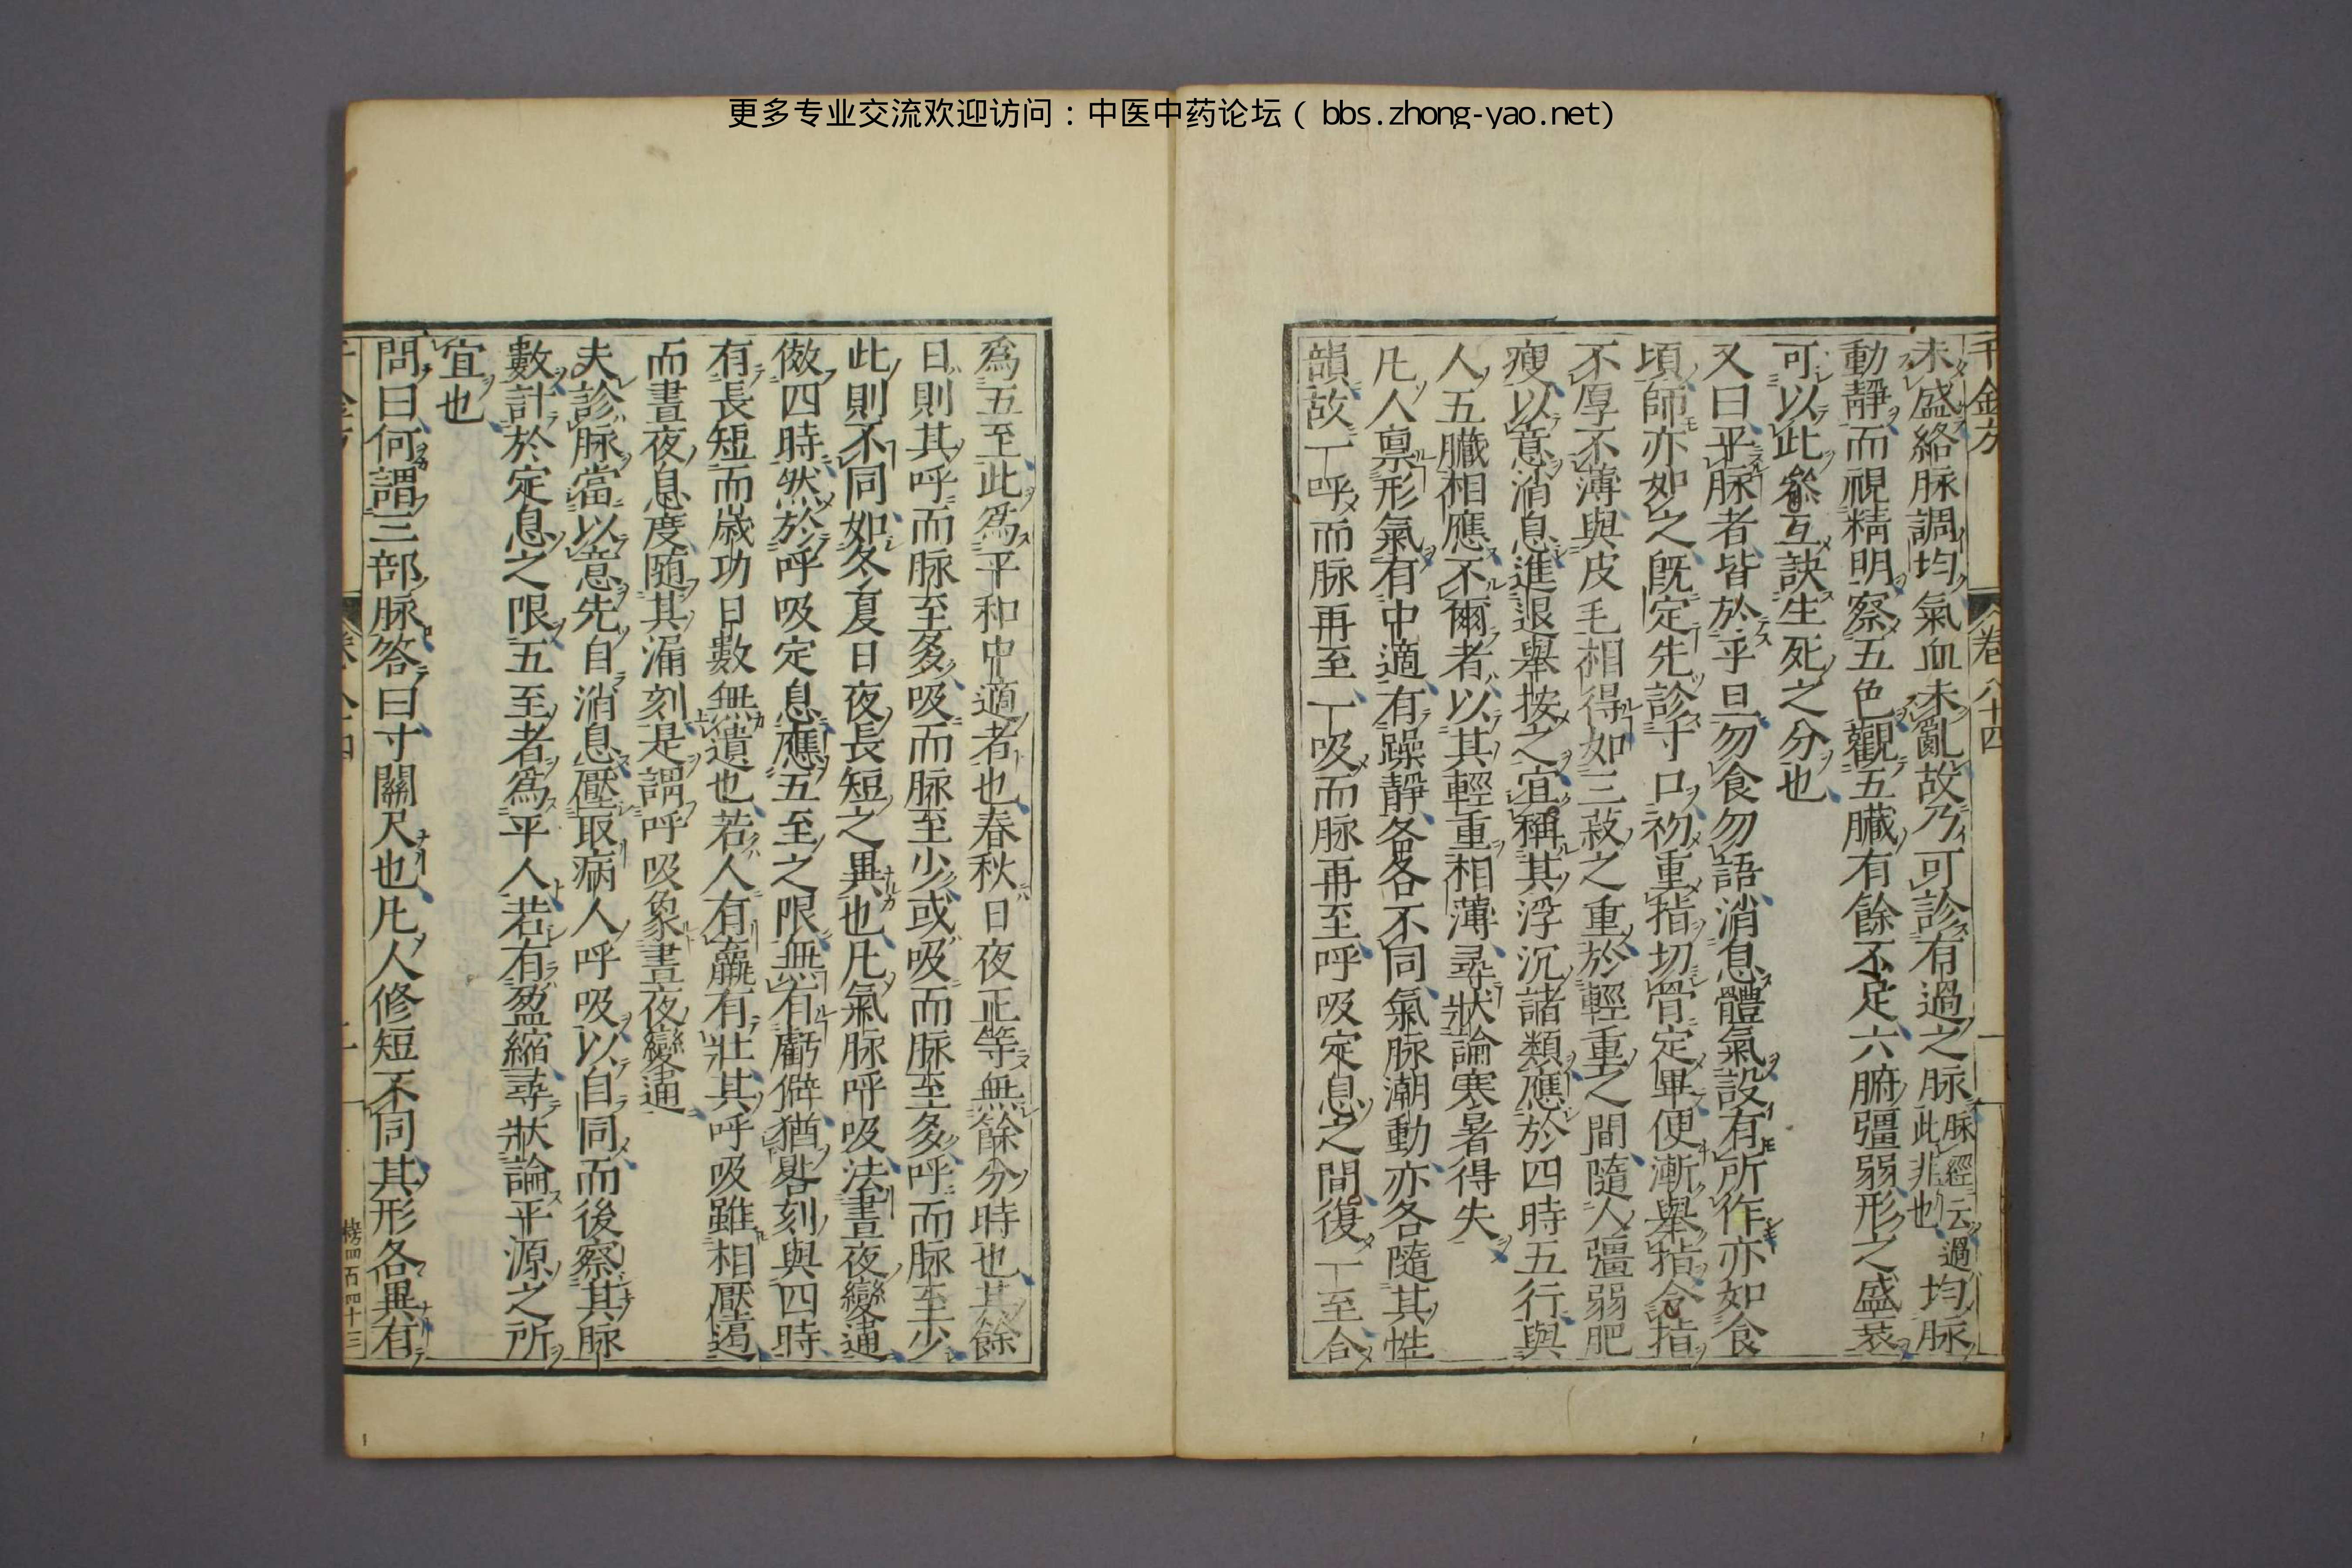 更多专业交流欢迎访问：中医中药论坛（bbs.zhong-yao.net）
千金方 卷八十四
未盛絡脉調均氣血未亂故乃可診有過之脉脉經云過此非也均脉
動靜而視精明察五色觀五臟有餘不足六腑彊弱形之盛衰
可以此參互訣生死之分也
又曰平脉者皆於平旦勿食勿語消息體氣設有所作亦如食
頃師亦如之既定先診寸口初重指切骨定畢便漸舉指令指
不厚不薄與皮毛相得如三菽之重於輕重之間隨人彊弱肥
瘦以意消息進退舉按之宜稱其浮沉諸類應於四時五行與
人五臟相應不爾者以其輕重相薄尋狀論寒暑得失
凡人稟形氣有中適有躁靜各各不同氣脉潮動亦各隨其性
韻故一呼而脉再至一吸而脉再至呼吸定息之間復一至合
爲五至此爲平和中適者也春秋日夜正等無餘分時也其餘
日則其呼而脉至多吸而脉至少或吸而脉至多呼而脉至少
此則不同如冬夏日夜長短之異也凡氣脉呼吸法晝夜變通
倣四時然於呼吸定息應五至之限無有虧僻猶晷刻與四時
有長短而歲功日數無遺也若人有羸有壯其呼吸雖相壓遏
而晝夜息度随其漏刻是謂呼吸象晝夜變通
夫診脉當以意先自消息壓取病人呼吸以自同而後察其脉
數計於定息之限五至者爲平人若有盈縮尋狀論平源之所
宜也
問曰何謂三部脉答曰寸關尺也凡人修短不同其形各異有